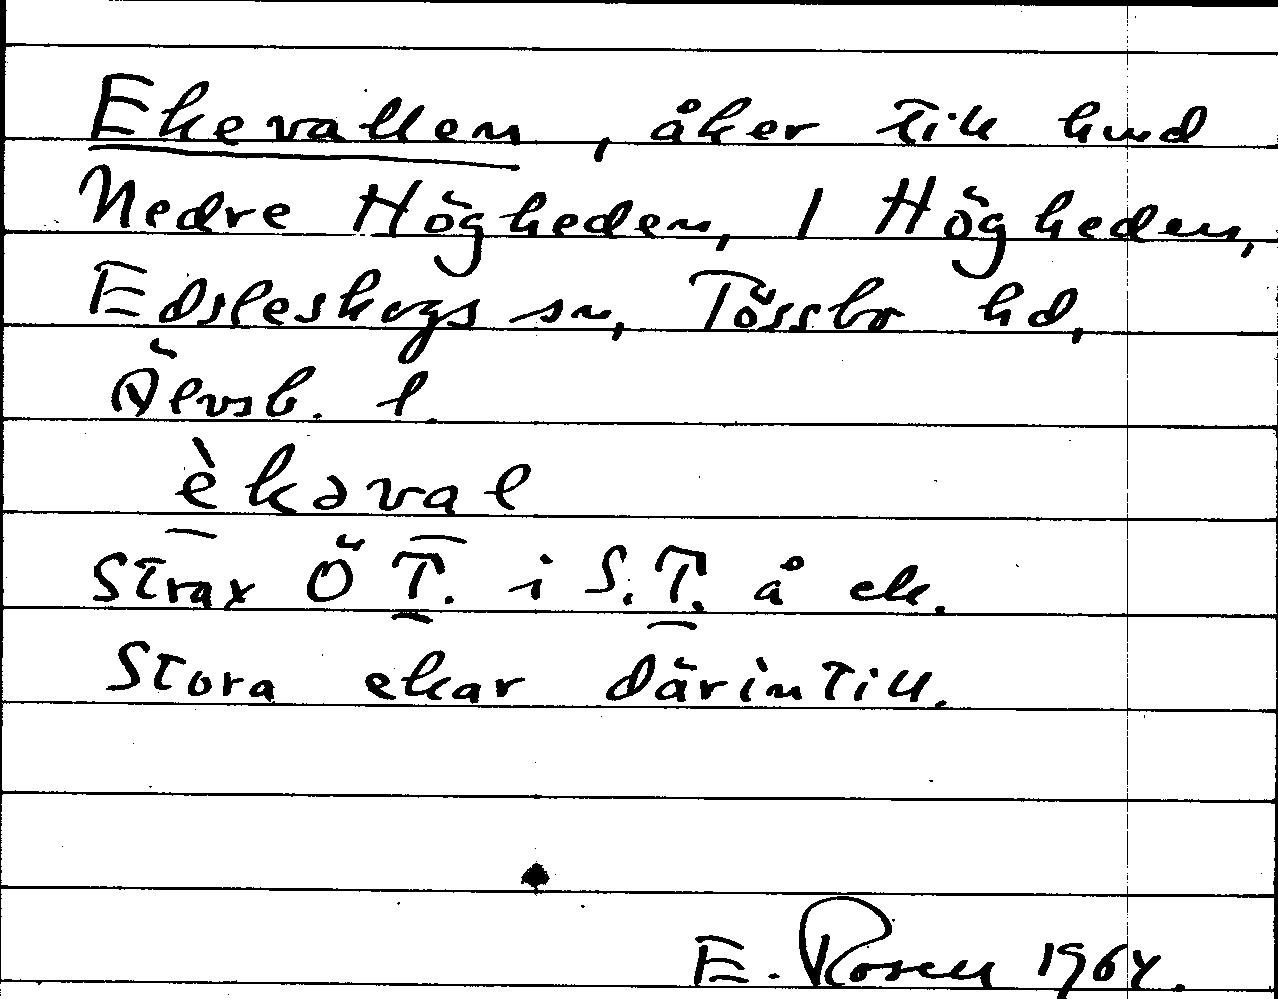 Ekevallen, åker till hmd
Nedre Högheden, 1 Högheden,
Edsleskogs sn, Tössbo hd,
Älvsb. l.
èkəval
Strax Ö T. i S. T. å ek.
Stora ekar därintill.
E. Rosell 1964.